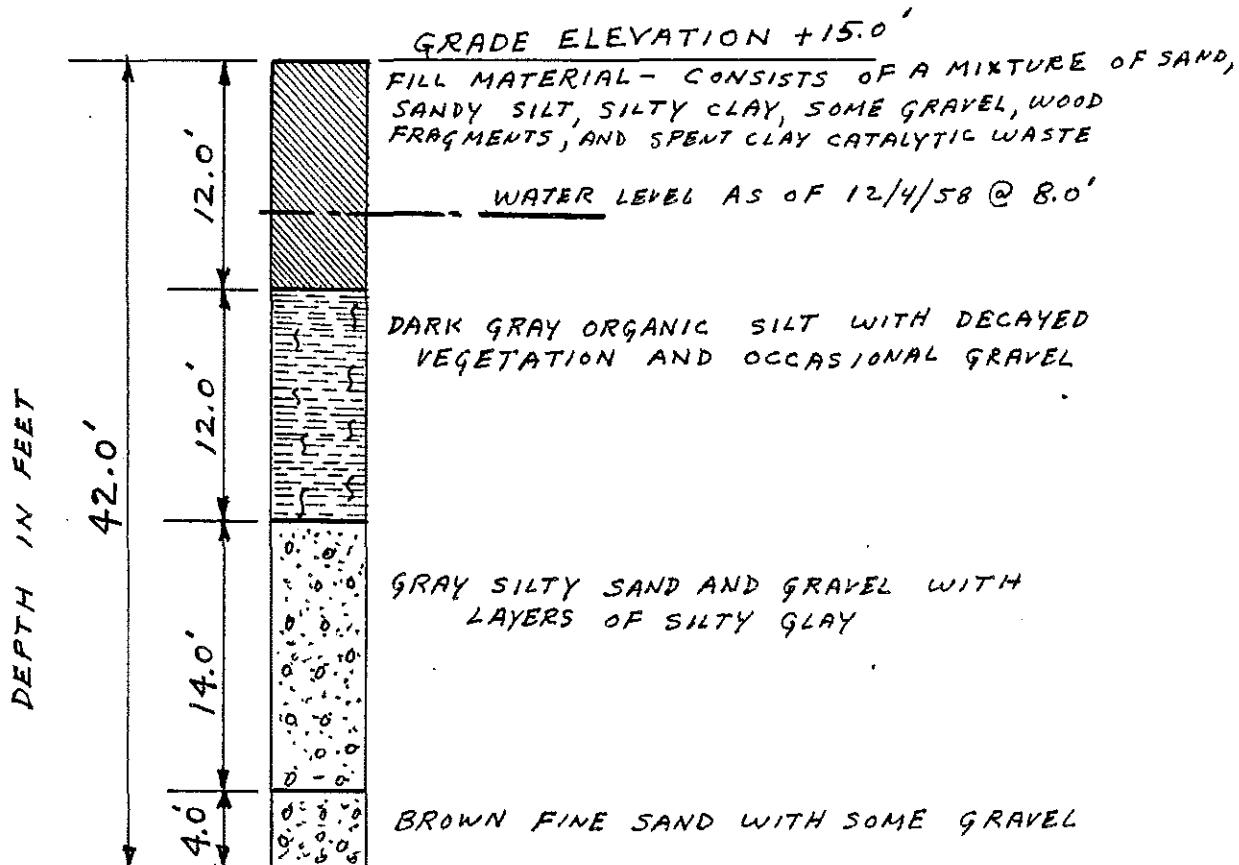 GRADE ELEVATION +15.0'
FILL MATERIAL - CONSISTS OF A MIXTURE OF SAND,
SANDY SILT, SILTY CLAY, SOME GRAVEL, WOOD
FRAGMENTS, AND SPENT CLAY CATALYTIC WASTE
12.0'
WATER LEVEL AS OF 12/4/58 @ 8.0'
DARK GRAY ORGANIC SILT WITH DECAYED
VEGETATION AND OCCASIONAL GRAVEL
12.0'
DEPTH IN FEET
42.0'
GRAY SILTY SAND AND GRAVEL WITH
LAYERS OF SILTY GLAY
14.0'
4.0'
BROWN FINE SAND WITH SOME GRAVEL